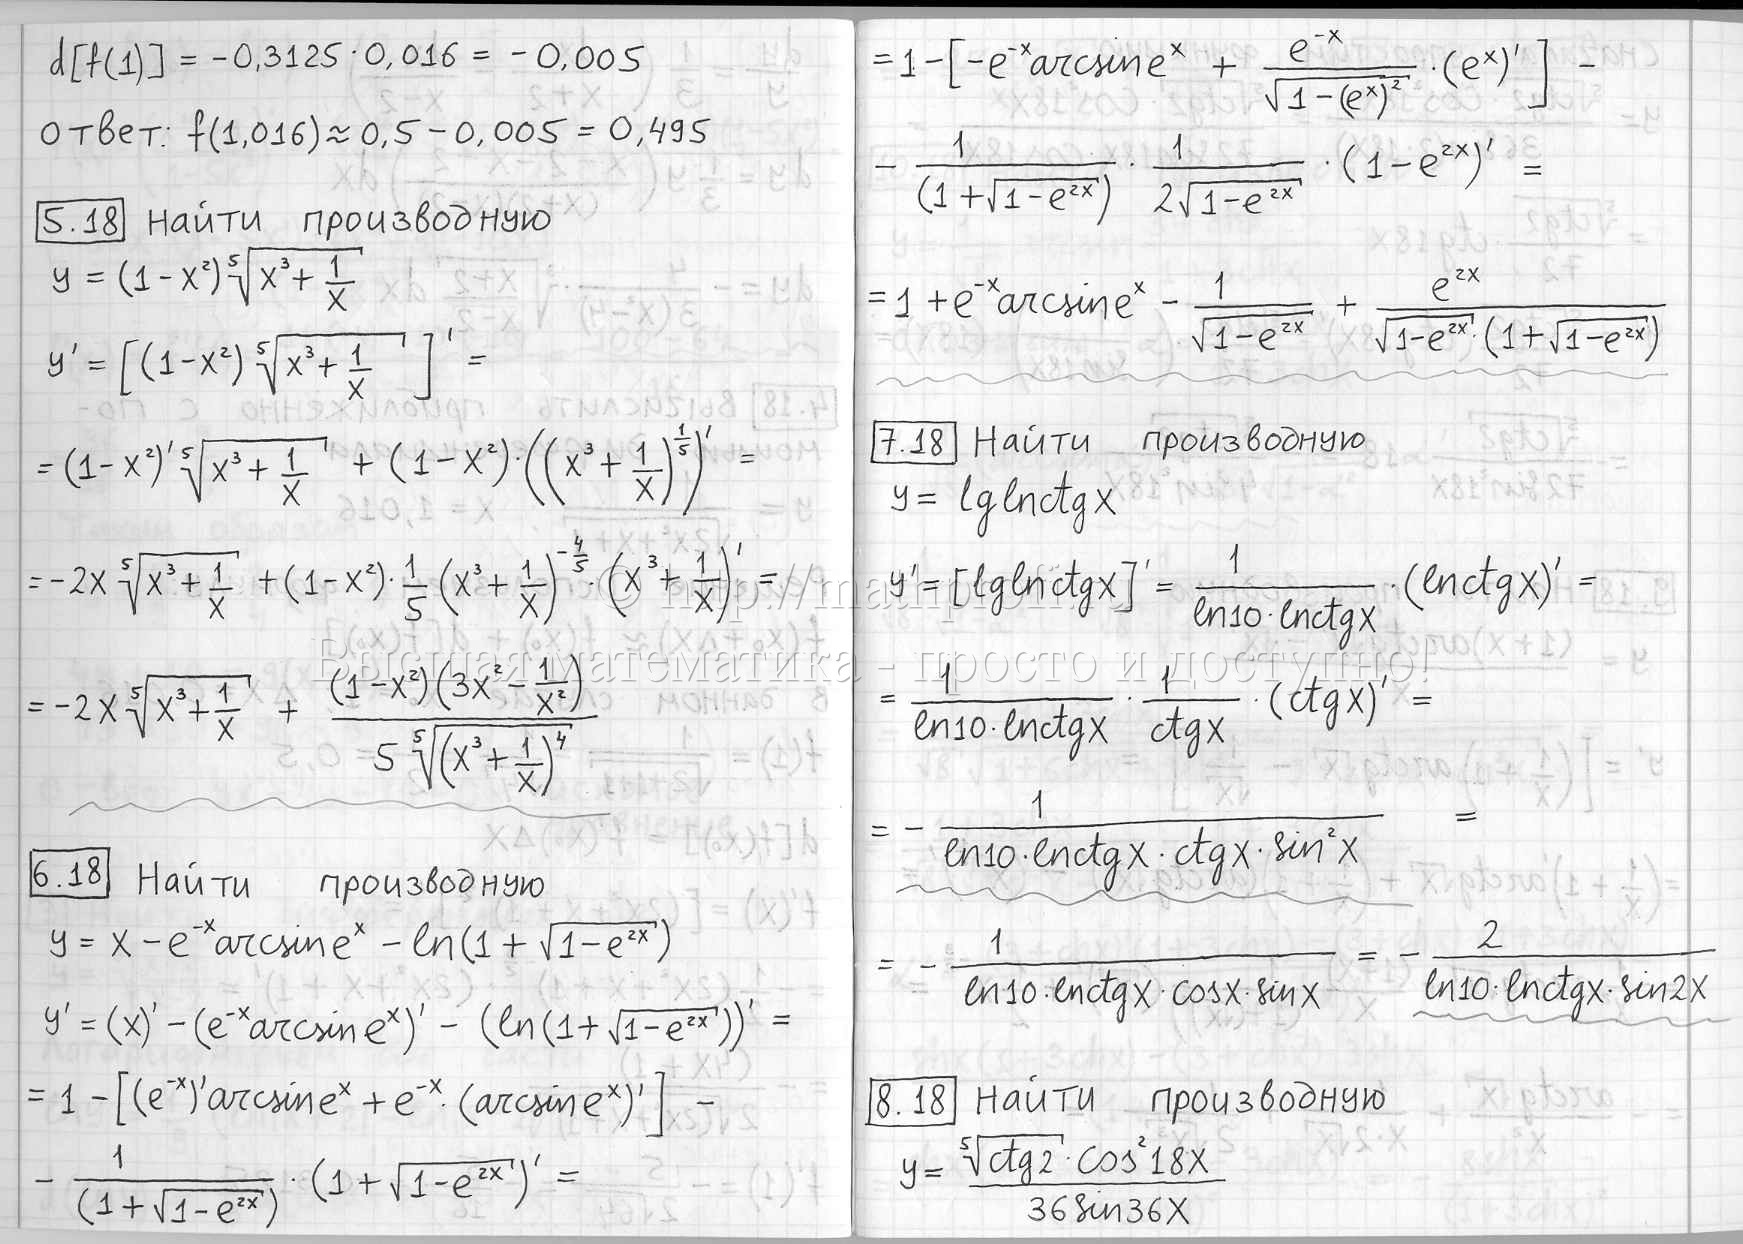 d[f(1)] = -0,3125·0,016 = -0,005
ответ: f(1,016) ≈ 0,5 - 0,005 = 0,495
5.18 Найти производную
y = (1-x²) ⁵√(x³ + 1/x)
y' = [(1-x²) ⁵√(x³ + 1/x)]' =
= (1-x²)' ⁵√(x³ + 1/x) + (1-x²)·((x³ + 1/x)^(1/5))' =
= -2x ⁵√(x³ + 1/x) + (1-x²)·1/5 (x³ + 1/x)^(-4/5)·(x³ + 1/x)' =
= -2x ⁵√(x³ + 1/x) + (1-x²)(3x² - 1/x²) / (5 ⁵√((x³ + 1/x)⁴))
6.18 Найти производную
y = x - e^(-x) arcsin e^x - ln(1 + √(1-e^(2x)))
y' = (x)' - (e^(-x) arcsin e^x)' - (ln(1 + √(1-e^(2x))))' =
= 1 - [(e^(-x))' arcsin e^x + e^(-x)·(arcsin e^x)'] -
- 1/(1+√(1-e^(2x))) · (1+√(1-e^(2x)))' =
= 1 - [-e^(-x) arcsin e^x + e^(-x)/√(1-(e^x)²) · (e^x)'] -
- 1/(1+√(1-e^(2x))) · 1/(2√(1-e^(2x))) · (1-e^(2x))' =
= 1 + e^(-x) arcsin e^x - 1/√(1-e^(2x)) + e^(2x)/(√(1-e^(2x))·(1+√(1-e^(2x))))
7.18 Найти производную
y = lg ln ctg x
y' = [lg ln ctg x]' = 1/(ln10·ln ctg x) · (ln ctg x)' =
= 1/(ln10·ln ctg x) · 1/ctg x · (ctg x)' =
= - 1/(ln10·ln ctg x·ctg x·sin²x) =
= - 1/(ln10·ln ctg x·cos x·sin x) = - 2/(ln10·ln ctg x·sin2x)
8.18 Найти производную
y = ⁵√(ctg2)·cos²18x / (36 sin36x)
© http://mathprofi.ru
Высшая математика - просто и доступно!